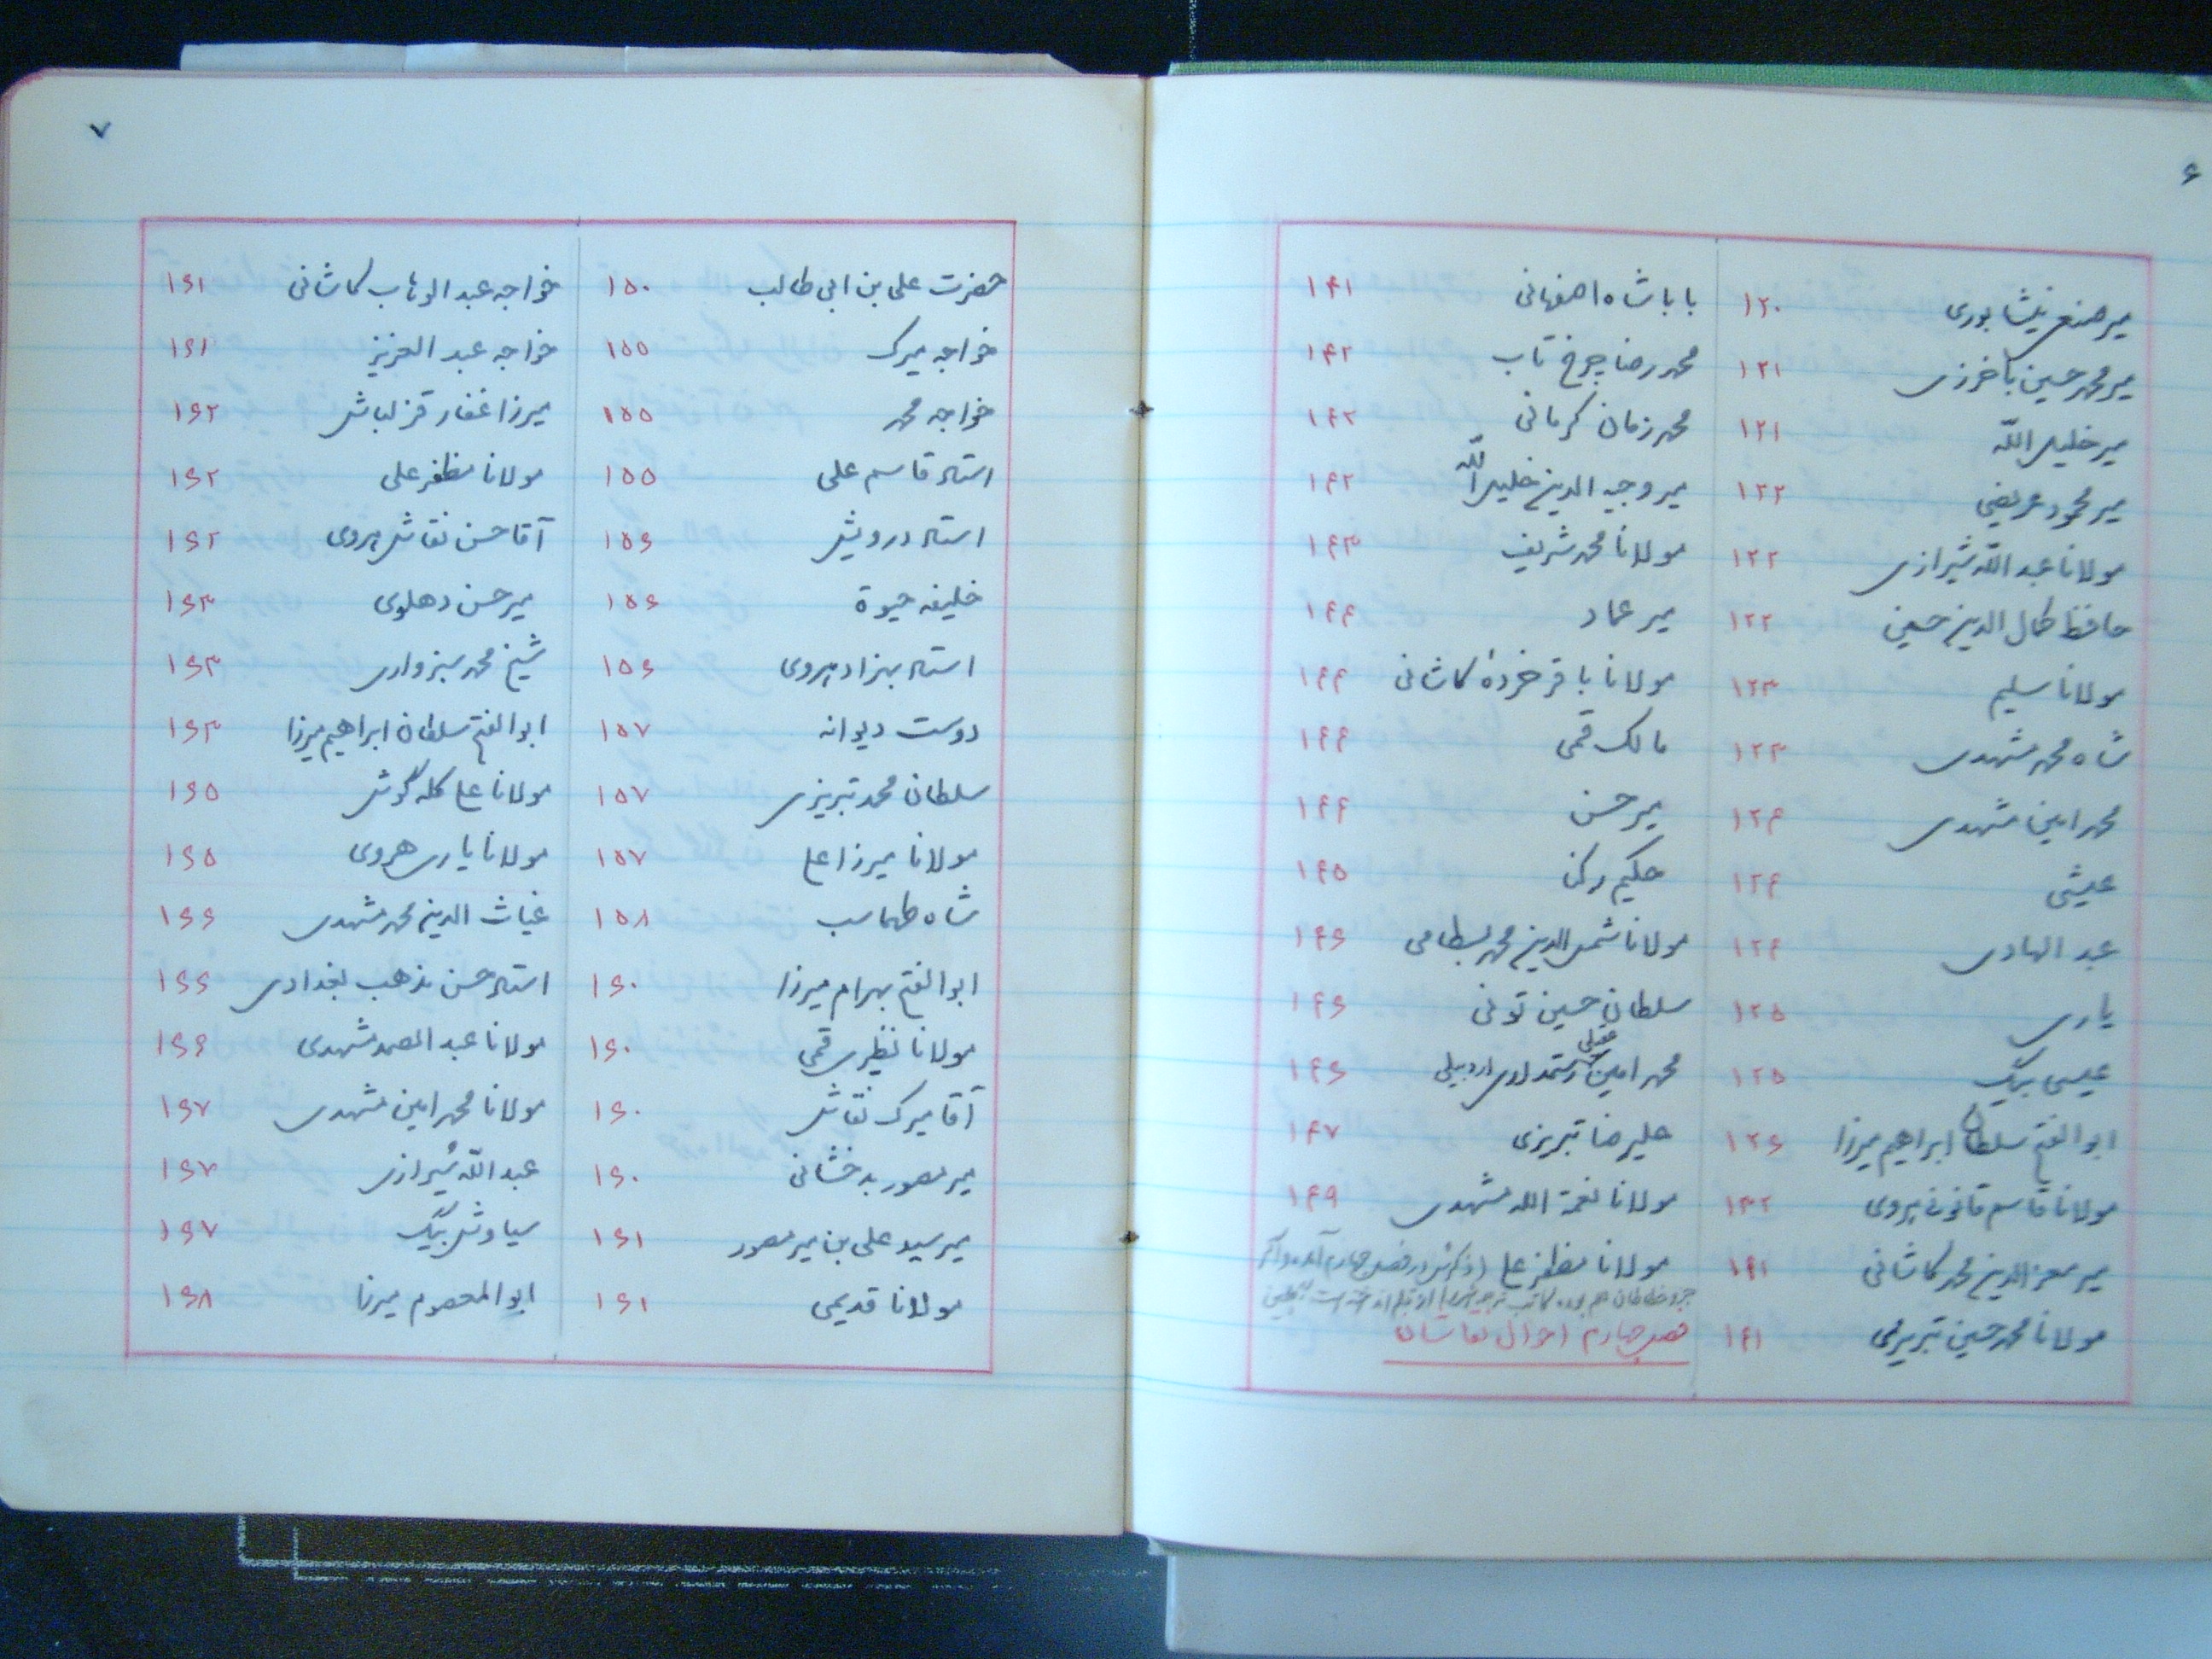 ۶
میر صنعی نیشابوری ۱۲۰
میر محمد حسین باخرزی ۱۲۱
میر خلیل الله ۱۲۱
میر محمود عریضی ۱۲۲
مولانا عبدالله شیرازی ۱۲۲
حافظ کمال الدین حسین ۱۲۲
مولانا سلیم ۱۲۳
شاه محمد مشهدی ۱۲۳
محمد امین مشهدی ۱۲۴
عیشی ۱۲۴
عبد الهادی ۱۲۴
یاری ۱۲۵
عیسی بیک ۱۲۵
ابو الفتح سلطان ابراهیم میرزا ۱۲۶
مولانا قاسم قانونی هروی ۱۳۲
میر معز الدین محمد کاشانی ۱۴۱
مولانا محمد حسین تبریزی ۱۴۱
بابا شاه اصفهانی ۱۴۱
محمد رضا چرخ تاب ۱۴۲
محمد زمان کرمانی ۱۴۲
میر وجیه الدین خلیل الله ۱۴۲
مولانا محمد شریف ۱۴۳
میر عماد ۱۴۴
مولانا باقر خردهٔ کاشانی ۱۴۴
مالک قمی ۱۴۴
میر حسن ۱۴۴
حکیم رکن ۱۴۵
مولانا شمس الدین محمد بسطامی ۱۴۶
سلطان حسین تونی ۱۴۶
محمد امین عقیلی رستمداری اردبیلی ۱۴۶
علیرضا تبریزی ۱۴۷
مولانا نعمة الله مشهدی ۱۴۹
مولانا مظفر علی (ذکرش در فصل چهارم آمده و اگر
جزو خطاطان هم بوده کاتب
فصل چهارم احوال نقاشان
۷
حضرت علی بن ابی طالب ۱۵۰
خواجه میرک ۱۵۵
خواجه محمد ۱۵۵
استاد قاسم علی ۱۵۵
استاد درویش ۱۵۶
خلیفه حیوة ۱۵۶
استاد بهزاد هروی ۱۵۶
دوست دیوانه ۱۵۷
سلطان محمد تبریزی ۱۵۷
مولانا میرزا علی ۱۵۷
شاه طهماسب ۱۵۸
ابو الفتح بهرام میرزا ۱۶۰
مولانا نظری قمی ۱۶۰
آقا میرک نقاش ۱۶۰
میر مصور بدخشانی ۱۶۰
میر سید علی بن میر مصور ۱۶۱
مولانا قدیمی ۱۶۱
خواجه عبد الوهاب کاشانی ۱۶۱
خواجه عبد العزیز ۱۶۱
میرزا غفار قزلباش ۱۶۲
مولانا مظفر علی ۱۶۲
آقا حسن نقاش هروی ۱۶۲
میر حسن دهلوی ۱۶۳
شیخ محمد سبزواری ۱۶۳
ابو الفتح سلطان ابراهیم میرزا ۱۶۳
مولانا علی کله گوش ۱۶۵
مولانا یاری هروی ۱۶۵
غیاث الدین محمد مشهدی ۱۶۶
استاد حسن مذهب بغدادی ۱۶۶
مولانا عبد الصمد مشهدی ۱۶۶
مولانا محمد امین مشهدی ۱۶۷
عبد الله شیرازی ۱۶۷
سیاوش بیگ ۱۶۷
ابو المعصوم میرزا ۱۶۸